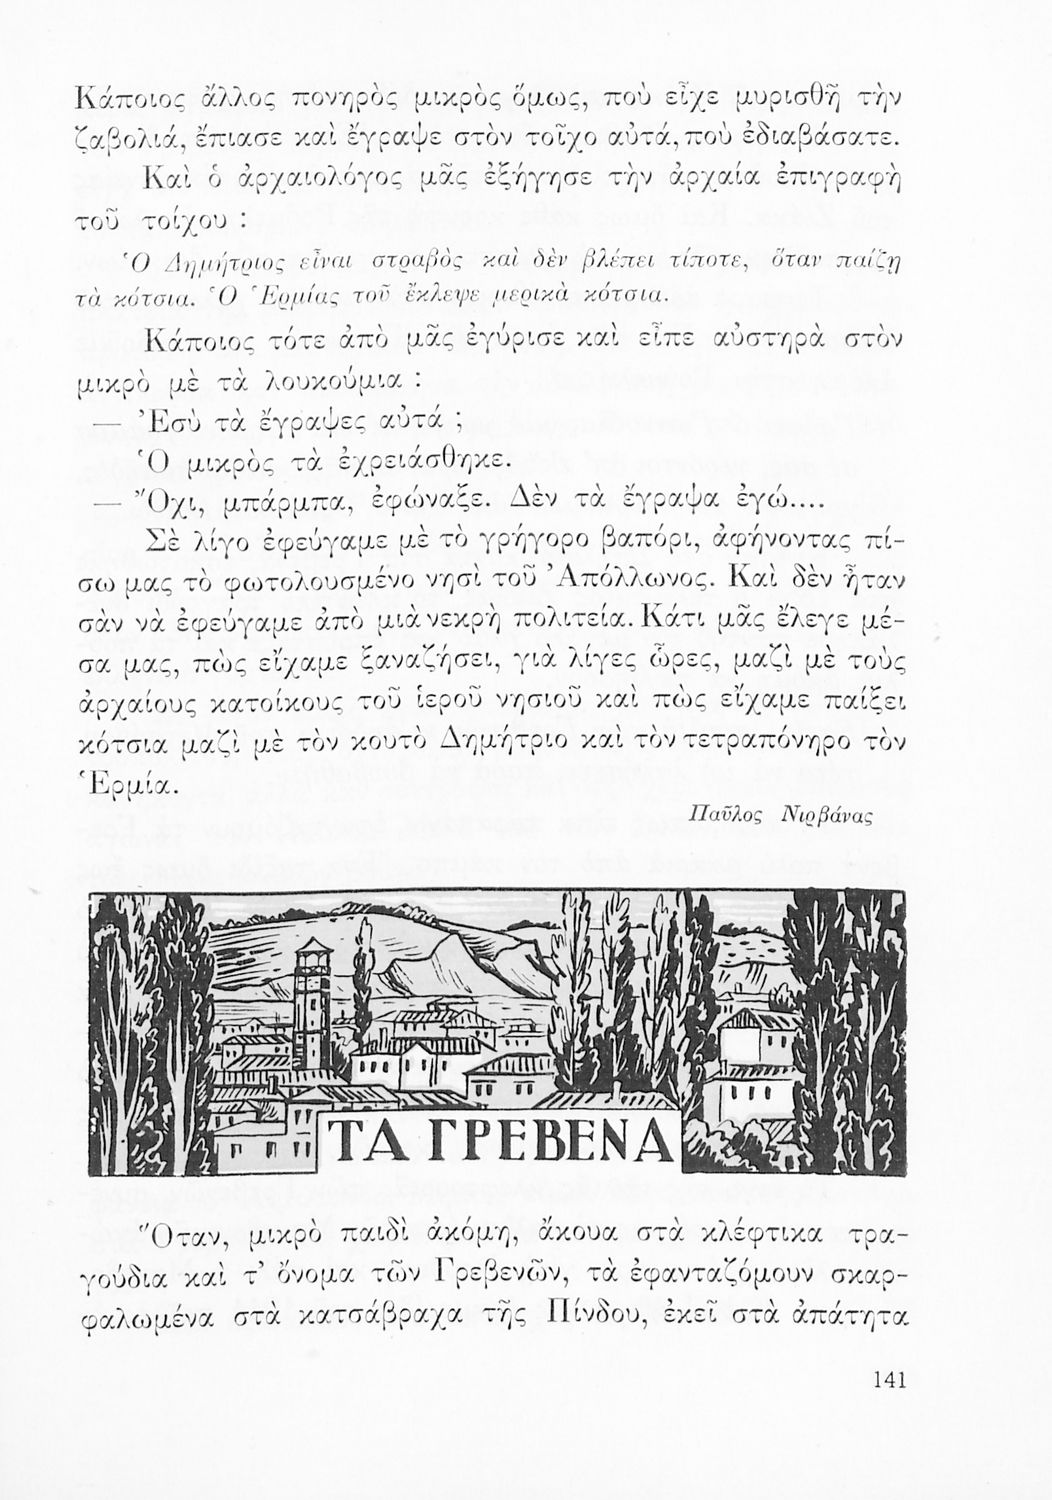 Κάποιος ἄλλος πονηρὸς μικρὸς ὅμως, ποὺ εἶχε μυρισθῆ τὴν
ζαβολιά, ἔπιασε καὶ ἔγραψε στὸν τοῖχο αὐτά, ποὺ ἐδιαβάσατε.
Καὶ ὁ ἀρχαιολόγος μᾶς ἐξήγησε τὴν ἀρχαία ἐπιγραφὴ
τοῦ τοίχου :
Ὁ Δημήτριος εἶναι στραβὸς καὶ δὲν βλέπει τίποτε, ὅταν παίζῃ
τὰ κότσια. Ὁ Ἑρμίας τοῦ ἔκλεψε μερικὰ κότσια.
Κάποιος τότε ἀπὸ μᾶς ἐγύρισε καὶ εἶπε αὐστηρὰ στὸν
μικρὸ μὲ τὰ λουκούμια :
— Ἐσὺ τὰ ἔγραψες αὐτά ;
Ὁ μικρὸς τὰ ἐχρειάσθηκε.
— Ὄχι, μπάρμπα, ἐφώναξε. Δὲν τὰ ἔγραψα ἐγώ....
Σὲ λίγο ἐφεύγαμε μὲ τὸ γρήγορο βαπόρι, ἀφήνοντας πί-
σω μας τὸ φωτολουσμένο νησὶ τοῦ Ἀπόλλωνος. Καὶ δὲν ἦταν
σὰν νὰ ἐφεύγαμε ἀπὸ μιὰ νεκρὴ πολιτεία. Κάτι μᾶς ἔλεγε μέ-
σα μας, πὼς εἴχαμε ξαναζήσει, γιὰ λίγες ὧρες, μαζὶ μὲ τοὺς
ἀρχαίους κατοίκους τοῦ ἱεροῦ νησιοῦ καὶ πὼς εἴχαμε παίξει
κότσια μαζὶ μὲ τὸν κουτὸ Δημήτριο καὶ τὸν τετραπόνηρο τὸν
Ἑρμία.
Παῦλος Νιρβάνας
ΤΑ ΓΡΕΒΕΝΑ
Ὅταν, μικρὸ παιδὶ ἀκόμη, ἄκουα στὰ κλέφτικα τρα-
γούδια καὶ τ’ ὄνομα τῶν Γρεβενῶν, τὰ ἐφανταζόμουν σκαρ-
φαλωμένα στὰ κατσάβραχα τῆς Πίνδου, ἐκεῖ στὰ ἀπάτητα
141